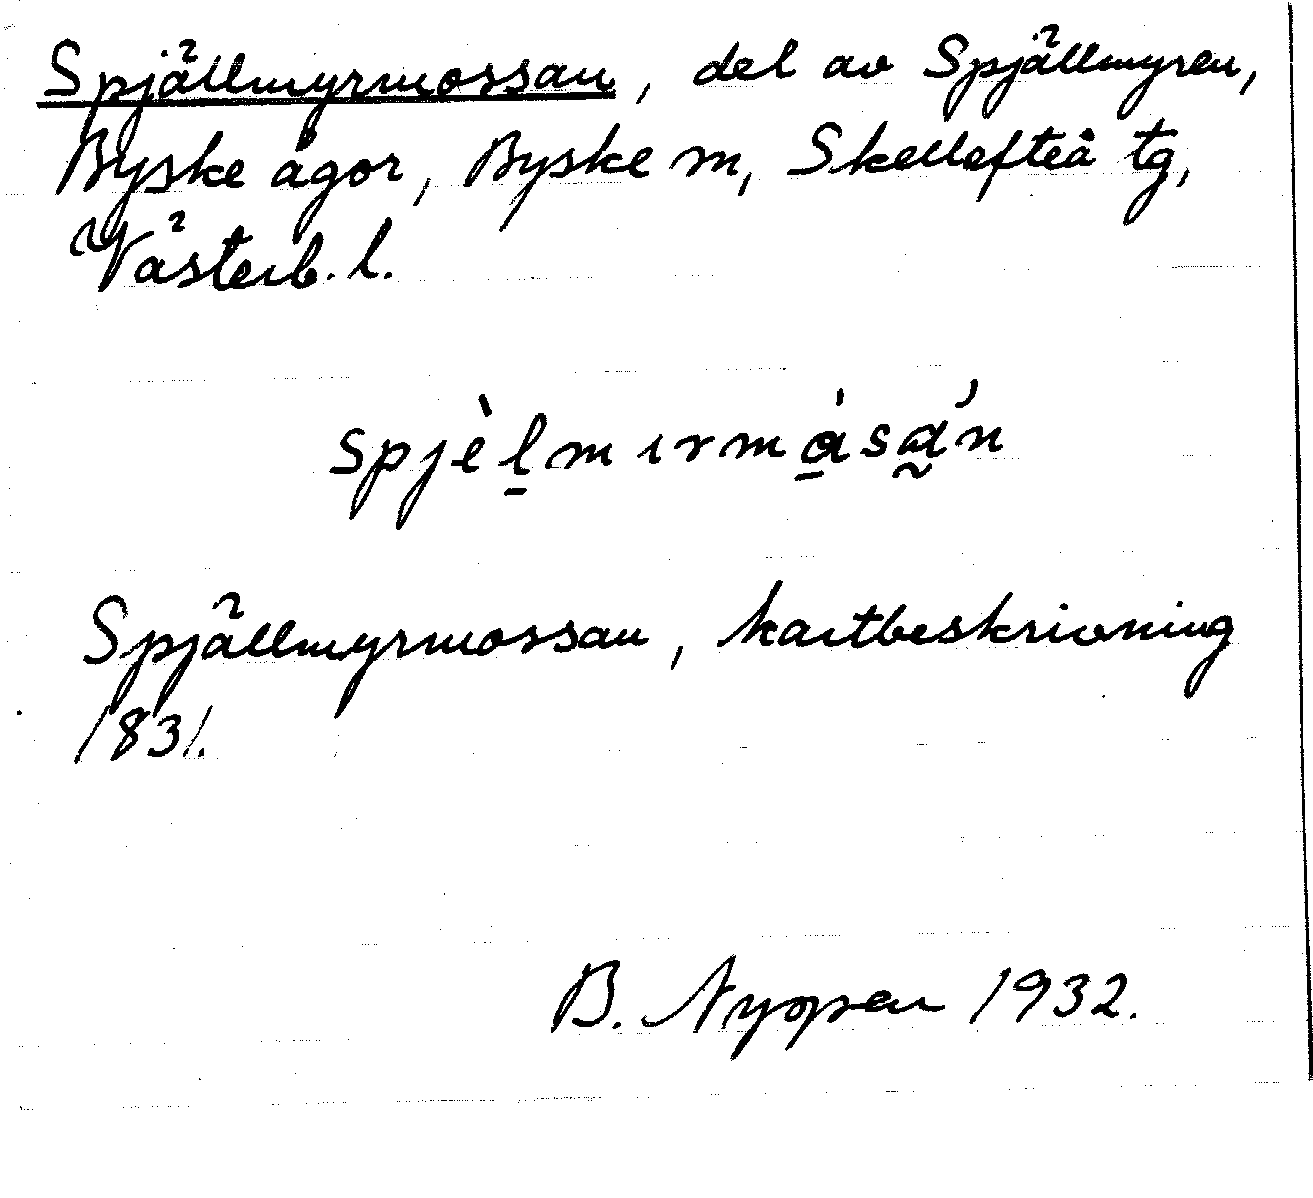 Spjällmyrmossan, del av Spjällmyren,
Byske ägor, Byske sn, Skellefteå tg,
Västerb. l.
spjèl̠mırmɑ̠̀sɑ̰́n
Spjällmyrmossan, kartbeskrivning
1831.
B. Nyopen 1932.